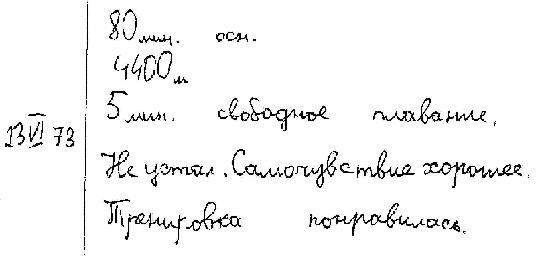 80 мин. осн.
4400 м
5 мин. свободное плавание.
13 VI 73
Не устал. Самочувствие хорошее.
Тренировка понравилась.